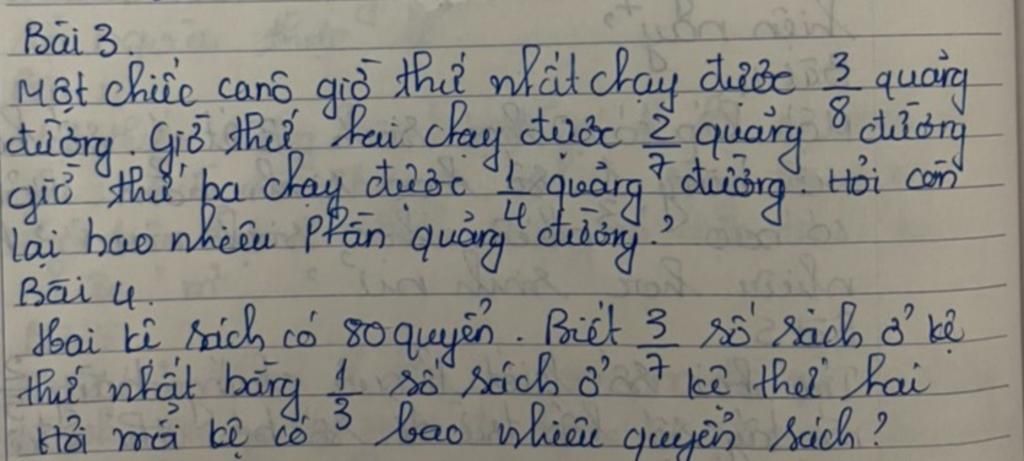 Bài 3.
Một chiếc canô giờ thứ nhất chạy được 3/8 quảng
đường. Giờ thứ hai chạy được 2/7 quảng đường
giờ thứ ba chạy được 1/4 quảng đường. Hỏi còn
lại bao nhiêu phần quảng đường?
Bài 4.
Hai kệ sách có 80 quyển. Biết 3/7 số sách ở kệ
thứ nhất bằng 1/3 số sách ở kệ thứ hai
Hỏi mỗi kệ có bao nhiêu quyển sách?